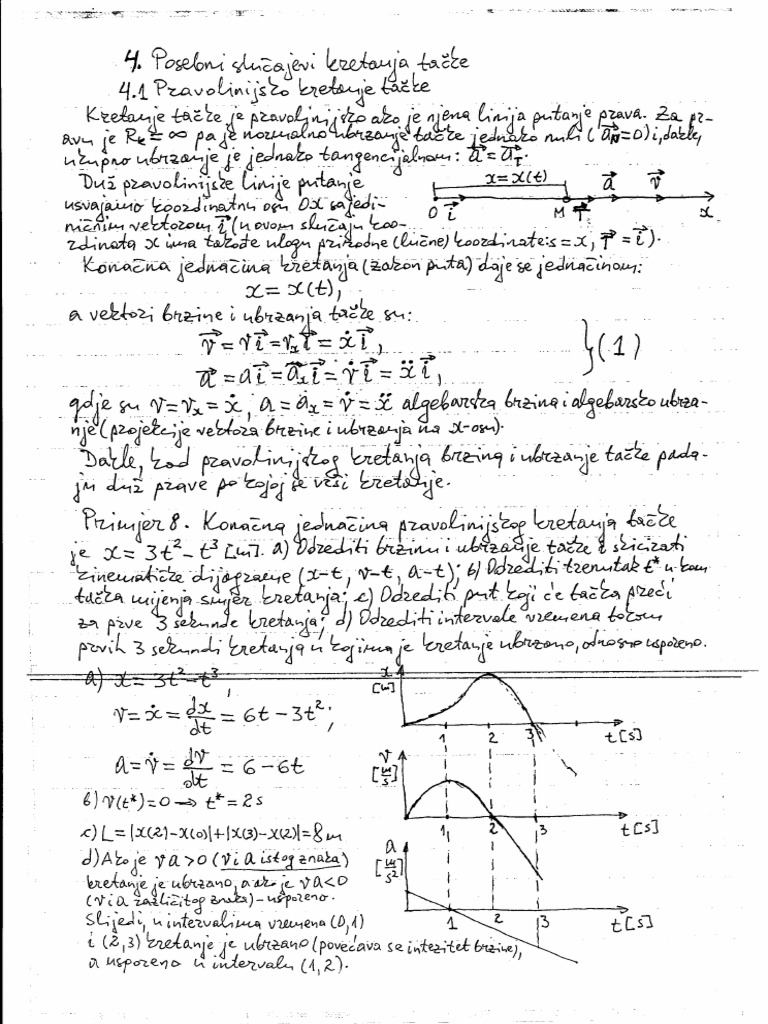 4. Posebni slučajevi kretanja tačke
4.1 Pravolinijsko kretanje tačke
Kretanje tačke je pravolinijsko ako je njena linija putanje prava. Za pr-
avu je Rk = ∞ pa je normalno ubrzanje tačke jednako nuli (a⃗N=0) i, dakle,
ukupno ubrzanje je jednako tangencijalnom: a⃗ = a⃗T.
Duž pravolinijske linije putanje
usvajamo koordinatnu osu Ox sa jedi-
ničnim vektorom i⃗ (u ovom slučaju koo-
rdinata x ima takođe ulogu prirodne (lučne) koordinate: s = x, T⃗ = i⃗).
x = x(t)
a⃗ v⃗
O i⃗ M T⃗ x
Konačna jednačina kretanja (zakon puta) daje se jednačinom:
x = x(t),
a vektori brzine i ubrzanja tačke su:
v⃗ = v i⃗ = vx i⃗ = ẋ i⃗,
a⃗ = a i⃗ = a⃗x i⃗ = v̇ i⃗ = ẍ i⃗,
}(1)
gdje su v = vx = ẋ, a = ax = v̇ = ẍ algebarska brzina i algebarsko ubrza-
nje (projekcije vektora brzine i ubrzanja na x-osu).
Dakle, kod pravolinijskog kretanja brzina i ubrzanje tačke pada-
ju duž prave po kojoj se vrši kretanje.
Primjer 8. Konačna jednačina pravolinijskog kretanja tačke
je x = 3t² - t³ [m]. a) Odrediti brzinu i ubrzanje tačke i skicirati
kinematičke dijagrame (x-t, v-t, a-t); b) Odrediti trenutak t* u kom
tačka mijenja smjer kretanja; c) Odrediti put koji će tačka preći
za prve 3 sekunde kretanja; d) Odrediti intervale vremena tokom
prvih 3 sekundi kretanja u kojima je kretanje ubrzano, odnosno usporeno.
a) x = 3t² - t³,
v = ẋ = dx/dt = 6t - 3t²;
a = v̇ = dv/dt = 6 - 6t
b) v(t*) = 0 → t* = 2 s
c) L = |x(2)-x(0)| + |x(3)-x(2)| = 8 m
d) Ako je va > 0 (v i a istog znaka)
kretanje je ubrzano, a ako je va < 0
(v i a različitog znaka) - usporeno.
Slijedi, u intervalima vremena (0,1)
i (2,3) kretanje je ubrzano (povećava se intezitet brzine),
a usporeno u intervalu (1,2).
x
[m]
1 2 3 t [s]
v
[m/s]
1 2 3 t [s]
a
[m/s²]
1 2 3 t [s]